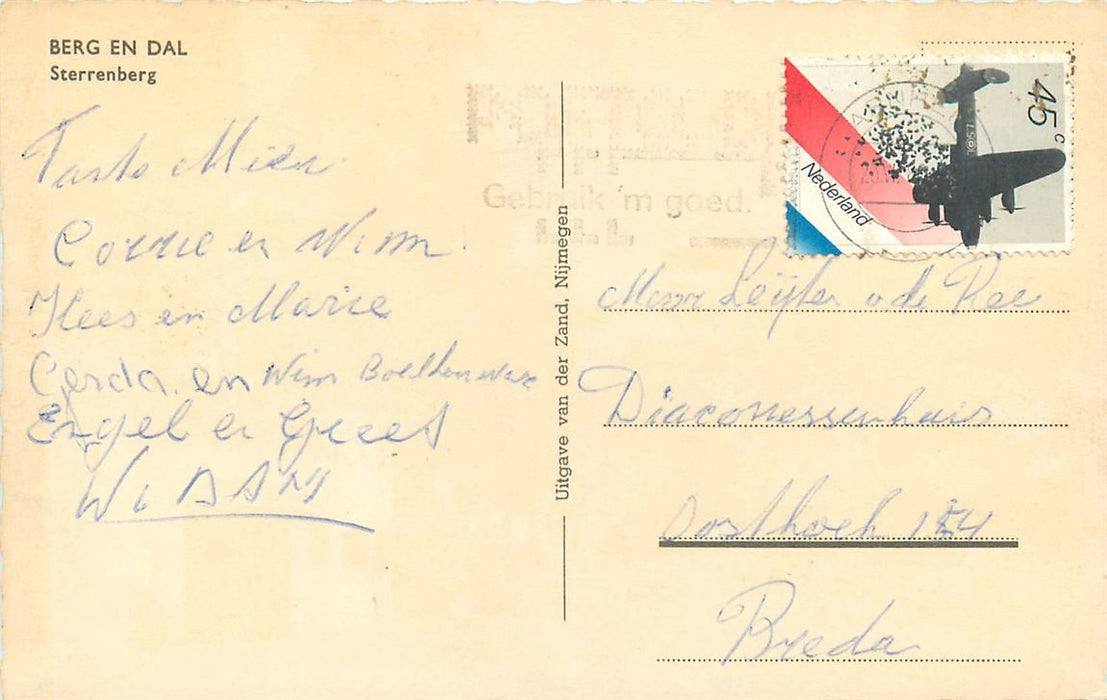 BERG EN DAL
Sterrenberg
Tante Mien
Corrie en Wim
Kees en Marie
Gerda en Wim
Engel en Geest
Uitgave van der Zand, Nijmegen
Gebruik 'm goed.
Nederland
45 c
Mevr Leijten v de Ree
Diaconessenhuis
Oosthoek
Breda